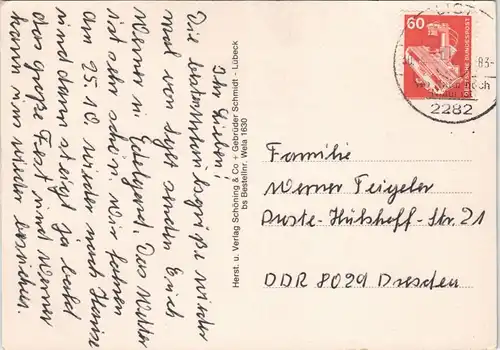 Ihr Lieben!
Die herzlichsten Urlaubsgrüße wieder
mal von Sylt senden Euch
Werner u. Edelgard. Das Wetter
ist sehr schön. Wir fahren
am 25.10. wieder nach Hause
und dann steigt ja bald
das große Fest und Werner
kann uns wieder besuchen.
Herst. u. Verlag Schöning & Co + Gebrüder Schmidt - Lübeck
bs Bestellnr. Wela 1630
60
DEUTSCHE BUNDESPOST
LIST
83-
noch
2282
Familie
Werner Feigeler
Droste-Hülshoff-Str. 21
DDR 8029 Dresden